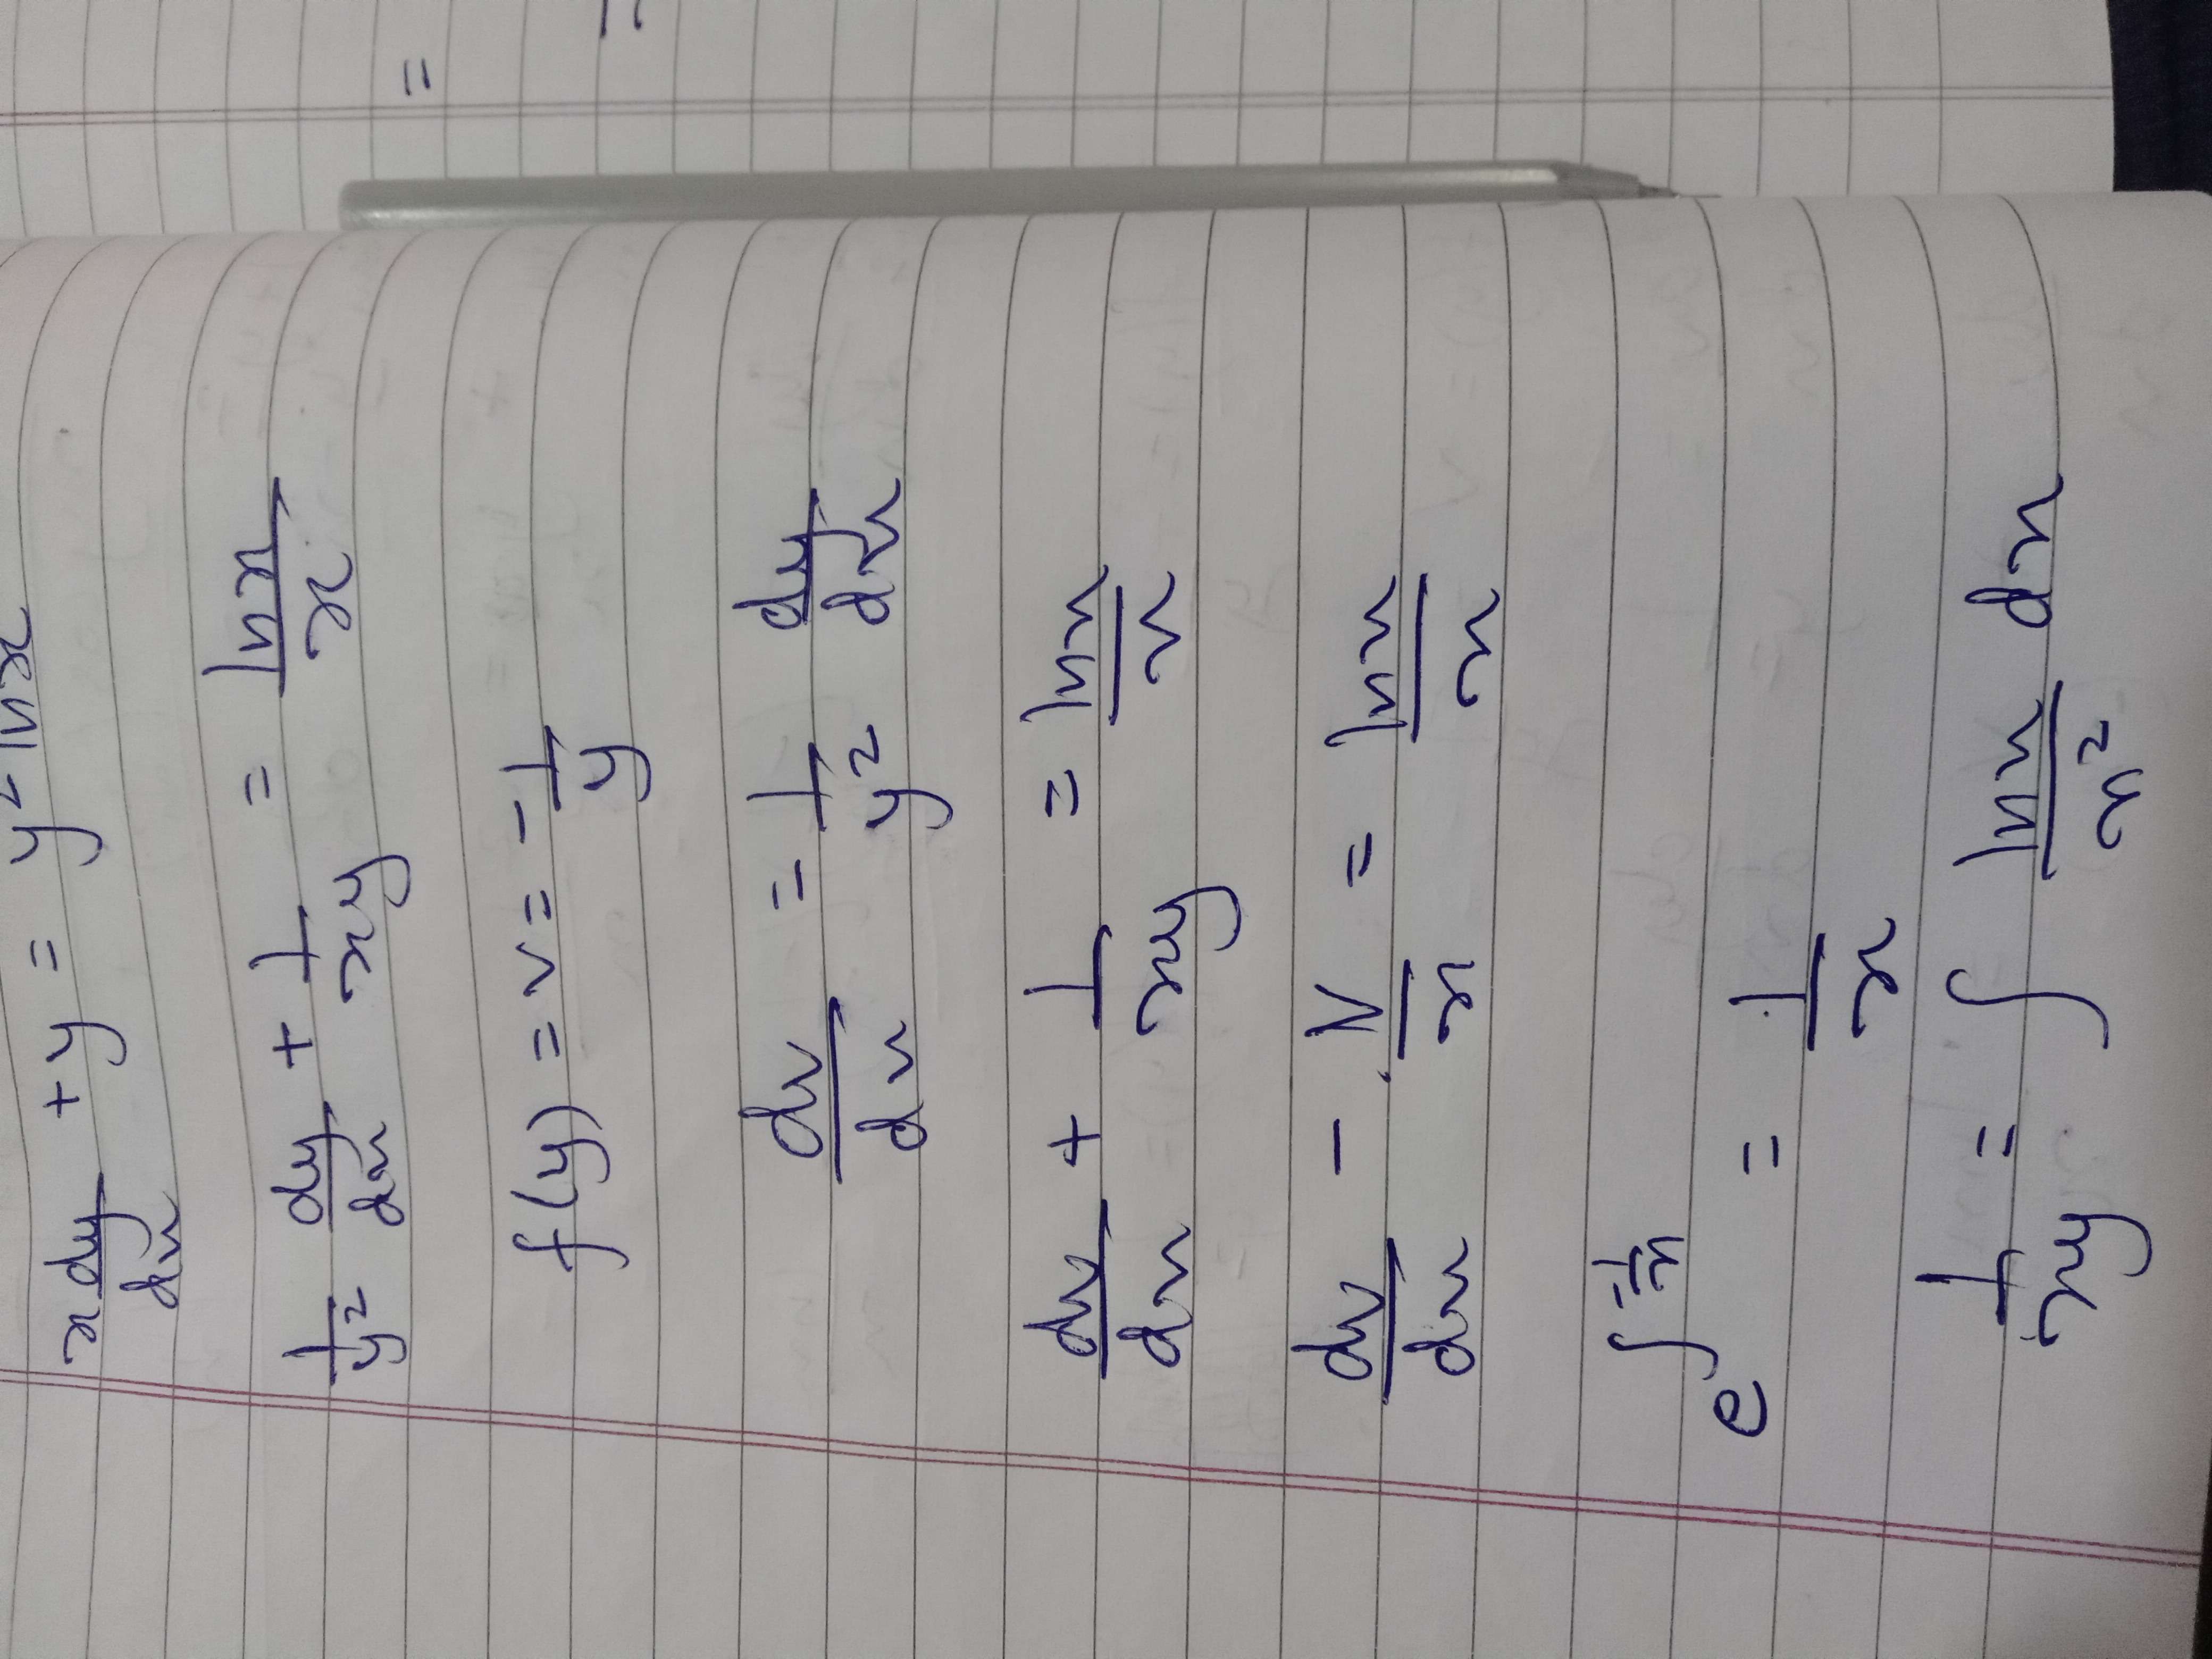 x dy/dx + y = y² ln x
1/y² dy/dx + 1/xy = ln x/x
f(y) = v = -1/y
dv/dx = 1/y² dy/dx
dv/dx + 1/xy = ln x/x
dv/dx - v/x = ln x/x
e^∫-1/x = 1/x
1/xy = ∫ ln x/x² dx
=